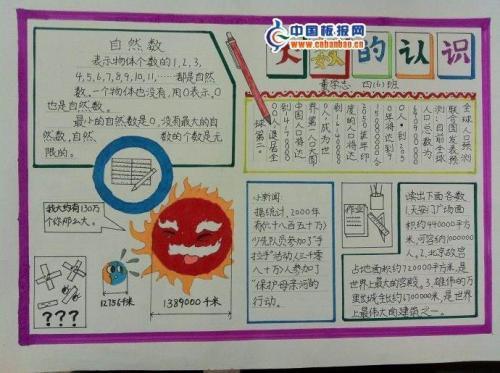 中国板报网
www.cabanbao.cn
大数的认识
四(6)班
自然数
表示物体个数的1,2,3,
4,5,6,7,8,9,10,11,……都是自然
数。一个物体也没有,用0表示,0
也是自然数。
最小的自然数是0,没有最大的自
然数,自然、数的个数是无
限的。
全球人口预测
联合国发表预
测:目前全球
人口总数为
我大约有130万
个你那么大。
12756千米
1389000千米
???
小新闻:
据统计,2000年
有(六十八百五十万)
少先队员参加了“手
拉手”活动,(三千零
八十万)人参加了
“保护母亲河”的
行动。
作业
读出下面各数
(天安门广场面
积约440000平方
米,可容纳1000000
人。2、北京故宫
占地面积约720000平方米,是
世界上最大的宫殿。3、雄伟的万
里长城全长约6700000米,是世界
上最伟大的建筑之一。